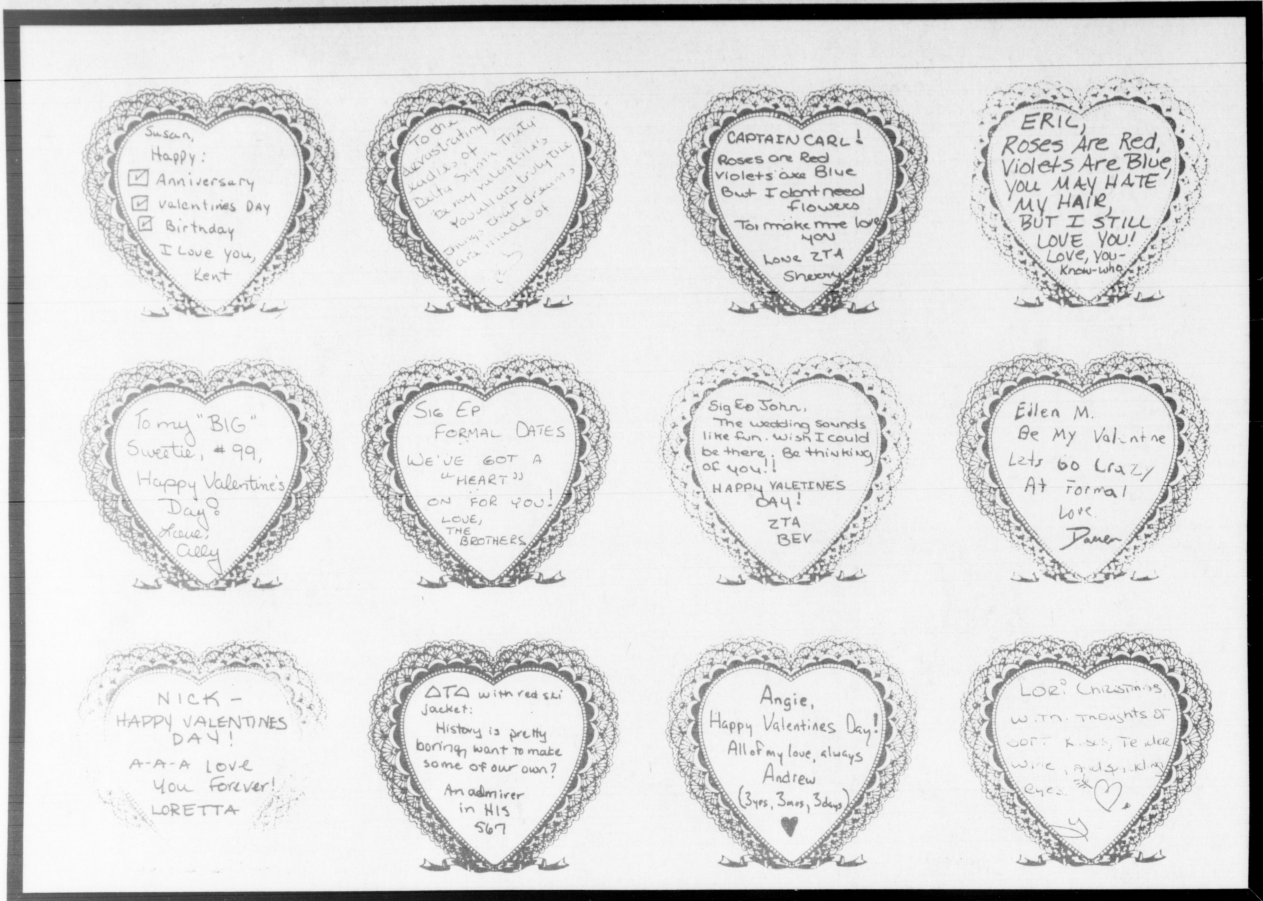 Susan,
Happy:
Anniversary
Valentines DAY
Birthday
I Love you,
Kent
To the
devastating
Ladies of
Delta Sigma Theta
Be my valentine's
You all are truly the
things that dreams
are made of
CAPTAIN CARL!
Roses are Red
Violets are Blue
But I dont need
flowers
To make me love
you
Love ZTA
Sherry
ERIC,
Roses Are Red,
Violets Are Blue,
YOU MAY HATE
MY HAIR,
BUT I STILL
LOVE YOU!
LOVE, YOU-
KNOW-WHO
To my "BIG"
Sweetie, #99,
Happy Valentine's
Day!
Love,
Ally
SIG EP
FORMAL DATES
WE'VE GOT A
"HEART"
ON FOR YOU!
LOVE,
THE
BROTHERS
Sig Ep John,
The wedding sounds
like fun. Wish I could
be there. Be thinking
of you!!
HAPPY VALETINES
DAY!
ZTA
BEV
Eilen M.
Be My Valentine
Lets Go Crazy
At Formal
Love
NICK -
HAPPY VALENTINES
DAY!
A-A-A LOVE
You Forever!
LORETTA
ΔTΔ with red ski
jacket:
History is pretty
boring, want to make
some of our own?
An admirer
in HIS
567
Angie,
Happy Valentines Day!
All of my love, always
Andrew
(3yrs, 3mos, 3days)
LORI Christmas
with thoughts of
soft kisses,
wine, and sparkling
eyes